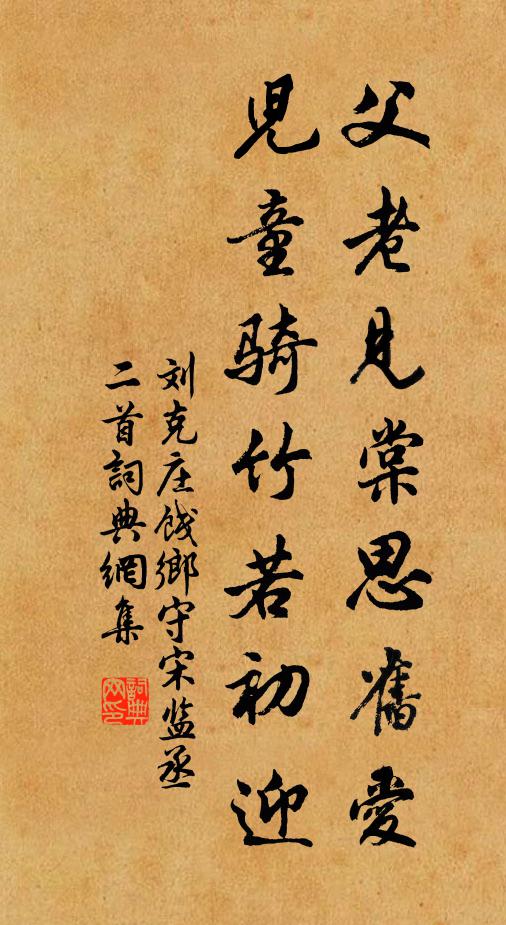 父老見棠思舊愛
兒童騎竹若初迎
刘克庄餞鄉守宋监丞
二首詞典網集
詞典
网印